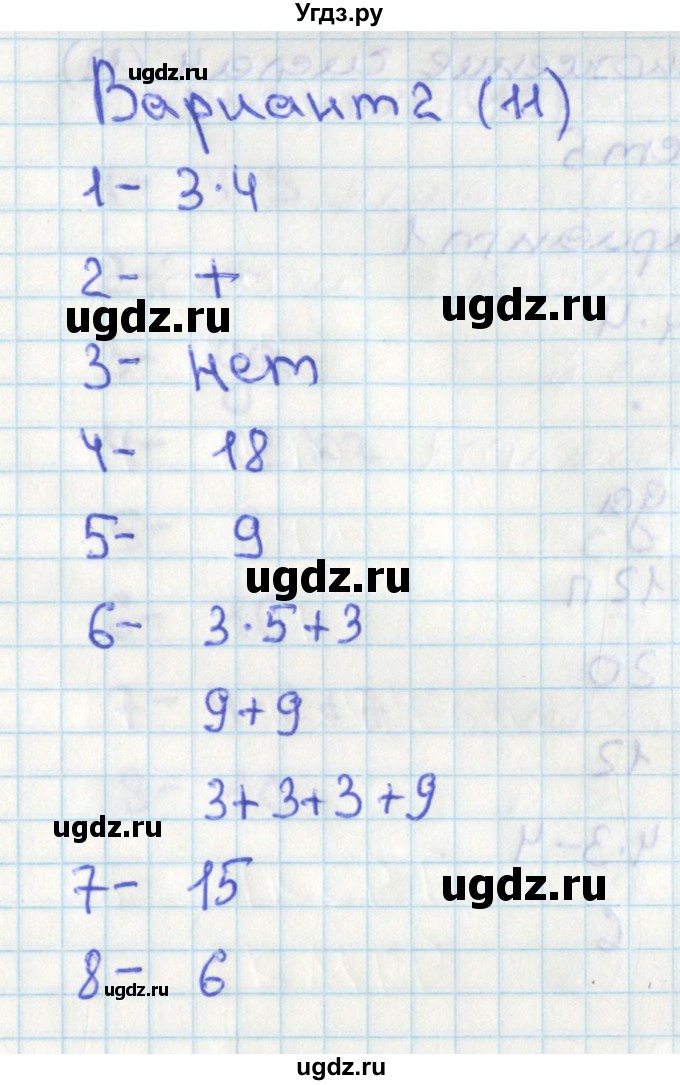 Угдз.ру
ugdz.ru
Вариант 2 (11)
1- 3·4
2- +
ugdz.ru
ugdz.ru
3- нет
4- 18
5- 9
ugdz.ru
6- 3·5+3
9+9
3+3+3+9
ugdz.ru
7- 15
ugdz.ru
8- 6
ugdz.ru
ugdz.ru